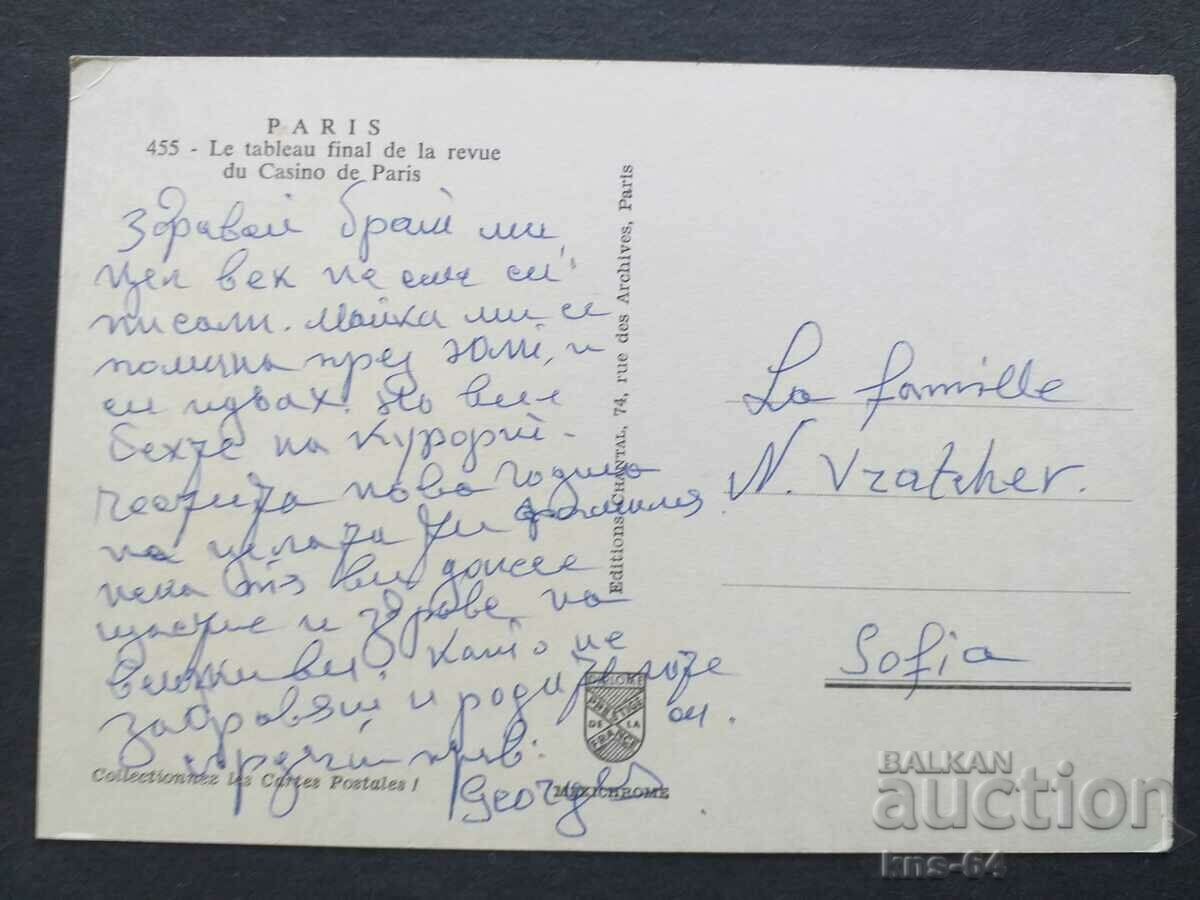 PARIS
455 - Le tableau final de la revue
du Casino de Paris
Здравей брат ми,
цял век не сме си
писали. Майка ми се
помина през Юли, и
си идвах. Но вие
бехте на Курорт.-
честита нова година
на целата ти фамилия
нека тя ви донесе
щастие и здраве, на
всички ви. Като не
забравящ и родителите
ви.
Сърдечни
George
Collectionnez les Cartes Postales !
Editions CHANTAL, 74, rue des Archives, Paris
DIPLOME
PRESTIGE
DE LA
FRANCE
MEXICHROME
La famille
N. Vratchev.
Sofia
BALKAN
auction
kns-64